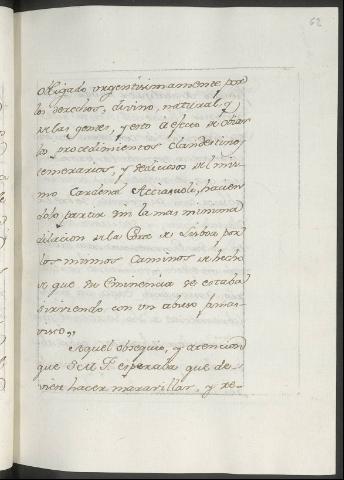 62
obligado urgentisimamente por
los derechos, divino, natural, y
de las gentes, y esto à efecto de obiar
los procedimientos clandestinos,
temerarios, y sediciosos del mis-
mo Cardenal Acciajuoli, hacien
dolo partir sin la mas minima
dilacion de la Corte de Lisboa, por
los mismos caminos de hecho
de que Su Eminencia se estaba
sirviendo con un abuso jamas
visto„
Aquel obsequio, y atencion
que S. M. F. esperaba que de-
vien hacer maravillas, y re-